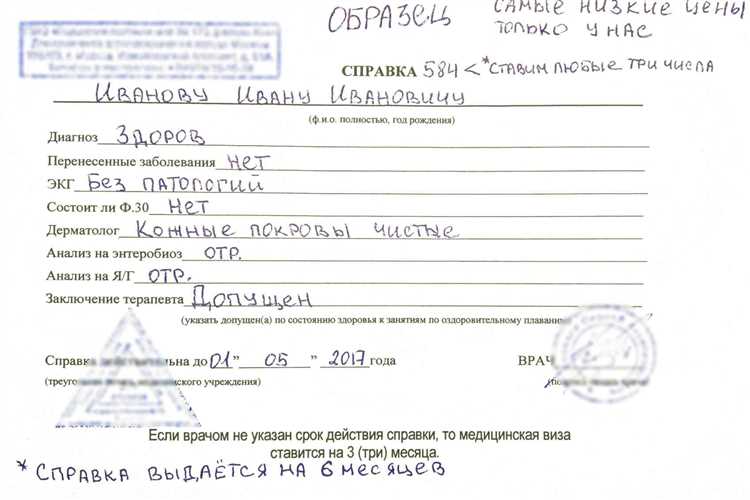 ОБРАЗЕЦ
САМЫЕ НИЗКИЕ ЦЕНЫ
ТОЛЬКО У НАС
СПРАВКА 584 < *СТАВИМ ЛЮБЫЕ ТРИ ЧИСЛА
Иванову Ивану Ивановичу
(ф.и.о. полностью, год рождения)
Диагноз Здоров
Перенесенные заболевания нет
ЭКГ Без патологий
Состоит ли Ф.30 Нет
Дерматолог Кожные покровы чистые
Анализ на энтеробиоз отр.
Анализ на Я/Г отр.
Заключение терапевта Допущен
(указать допущен(а) по состоянию здоровья к занятиям по оздоровительному плаванию
Справка действительна до 01 " 05 " 2017 года ВРАЧ
Если врачом не указан срок действия справки, то медицинская виза
ставится на 3 (три) месяца.
* СПРАВКА ВЫДАЁТСЯ НА 6 МЕСЯЦЕВ